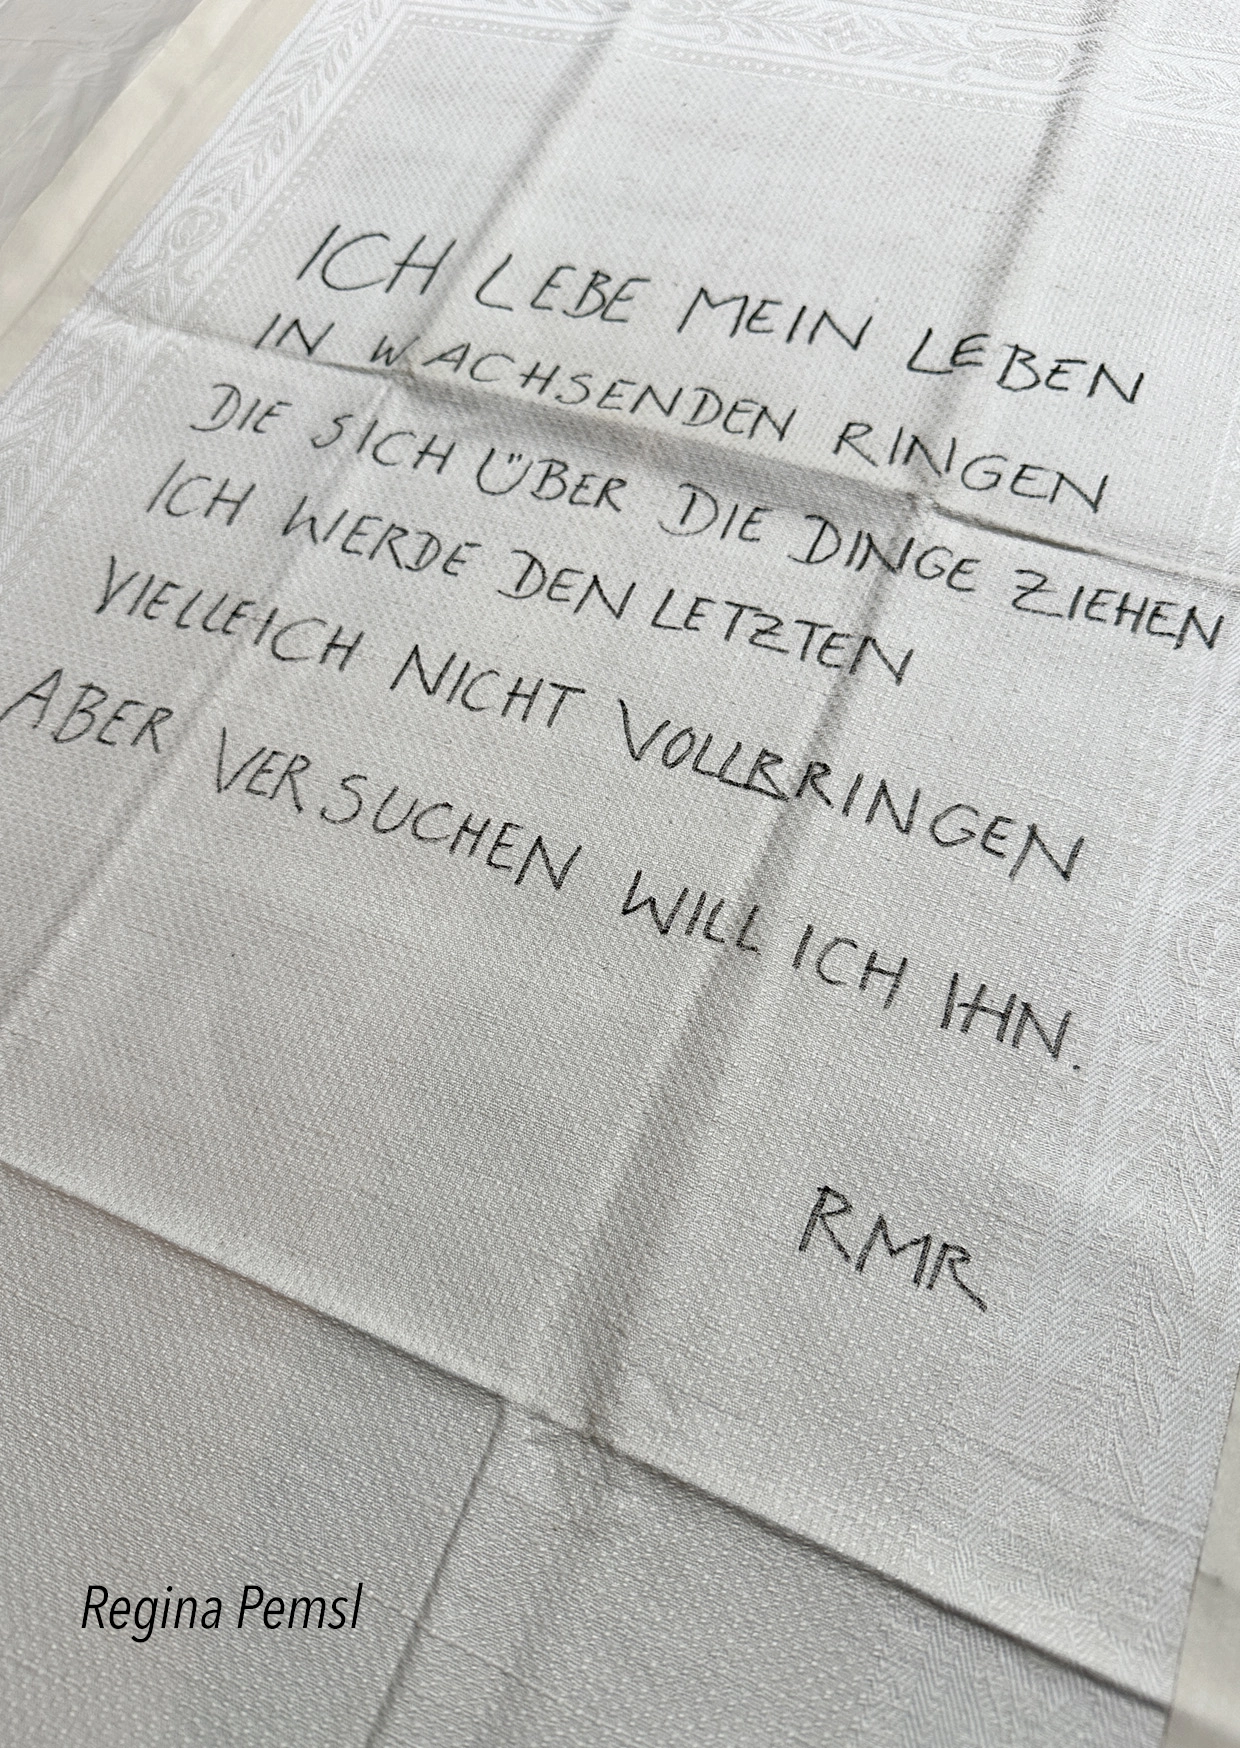 ICH LEBE MEIN LEBEN
IN WACHSENDEN RINGEN
DIE SICH ÜBER DIE DINGE ZIEHEN
ICH WERDE DEN LETZTEN
VIELLEICH NICHT VOLLBRINGEN
ABER VERSUCHEN WILL ICH IHN.
RMR
Regina Pemsl